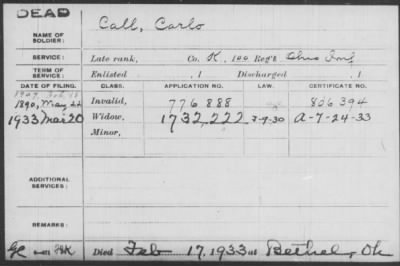 DEAD
NAME OF SOLDIER: Call, Carlo
SERVICE: Late rank, Co. K, 100 Reg't Ohio Inf
TERM OF SERVICE: Enlisted , 1 Discharged , 1
DATE OF FILING. CLASS. APPLICATION NO. LAW. CERTIFICATE NO.
1890, May 22 Invalid, 776888 806394
1933 Mar 20 Widow, 1732,222 A-7-24-33
Minor,
ADDITIONAL SERVICES:
REMARKS:
Died Feb 17, 1933 at Bethel, Oh